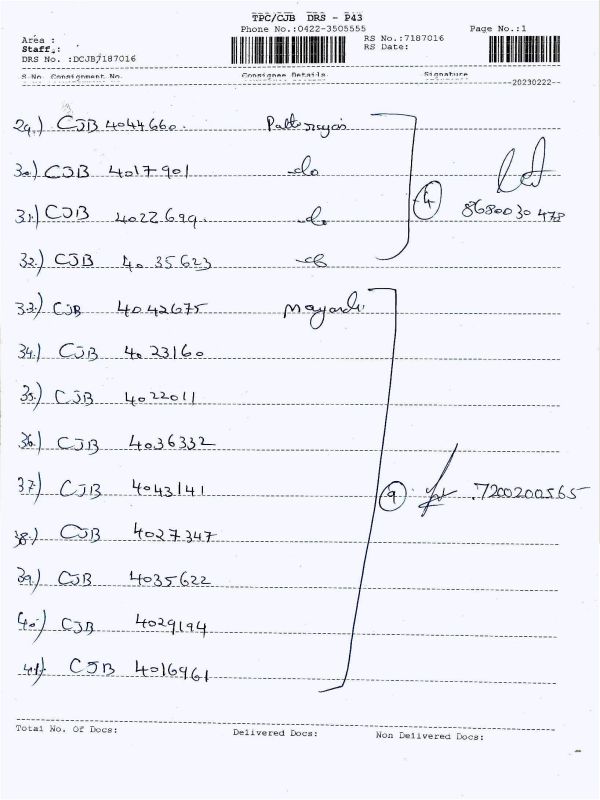 TPC/CJB DRS - P43
Phone No.:0422-3505555
Page No.:1
Area :
RS No.:7187016
Staff :
RS Date:
DRS No. :DCJB7187016
S.No. Consignment No. Consignee Details Signature
--20230222--
29.) CJB 4044660.
30) CJB 4017901 do
31.) CJB 4022699. do
8680030478
4
32.) CJB 4035623 do
33.) CJB 4042675
34.) CJB 4023160
35.) CJB 4022011
36.) CJB 4036332
37.) CJB 4043141
9 .7200200565
38.) CJB 4027347
39.) CJB 4035622
40.) CJB 4029194
41.) CJB 4016961
Total No. Of Docs: Delivered Docs: Non Delivered Docs: